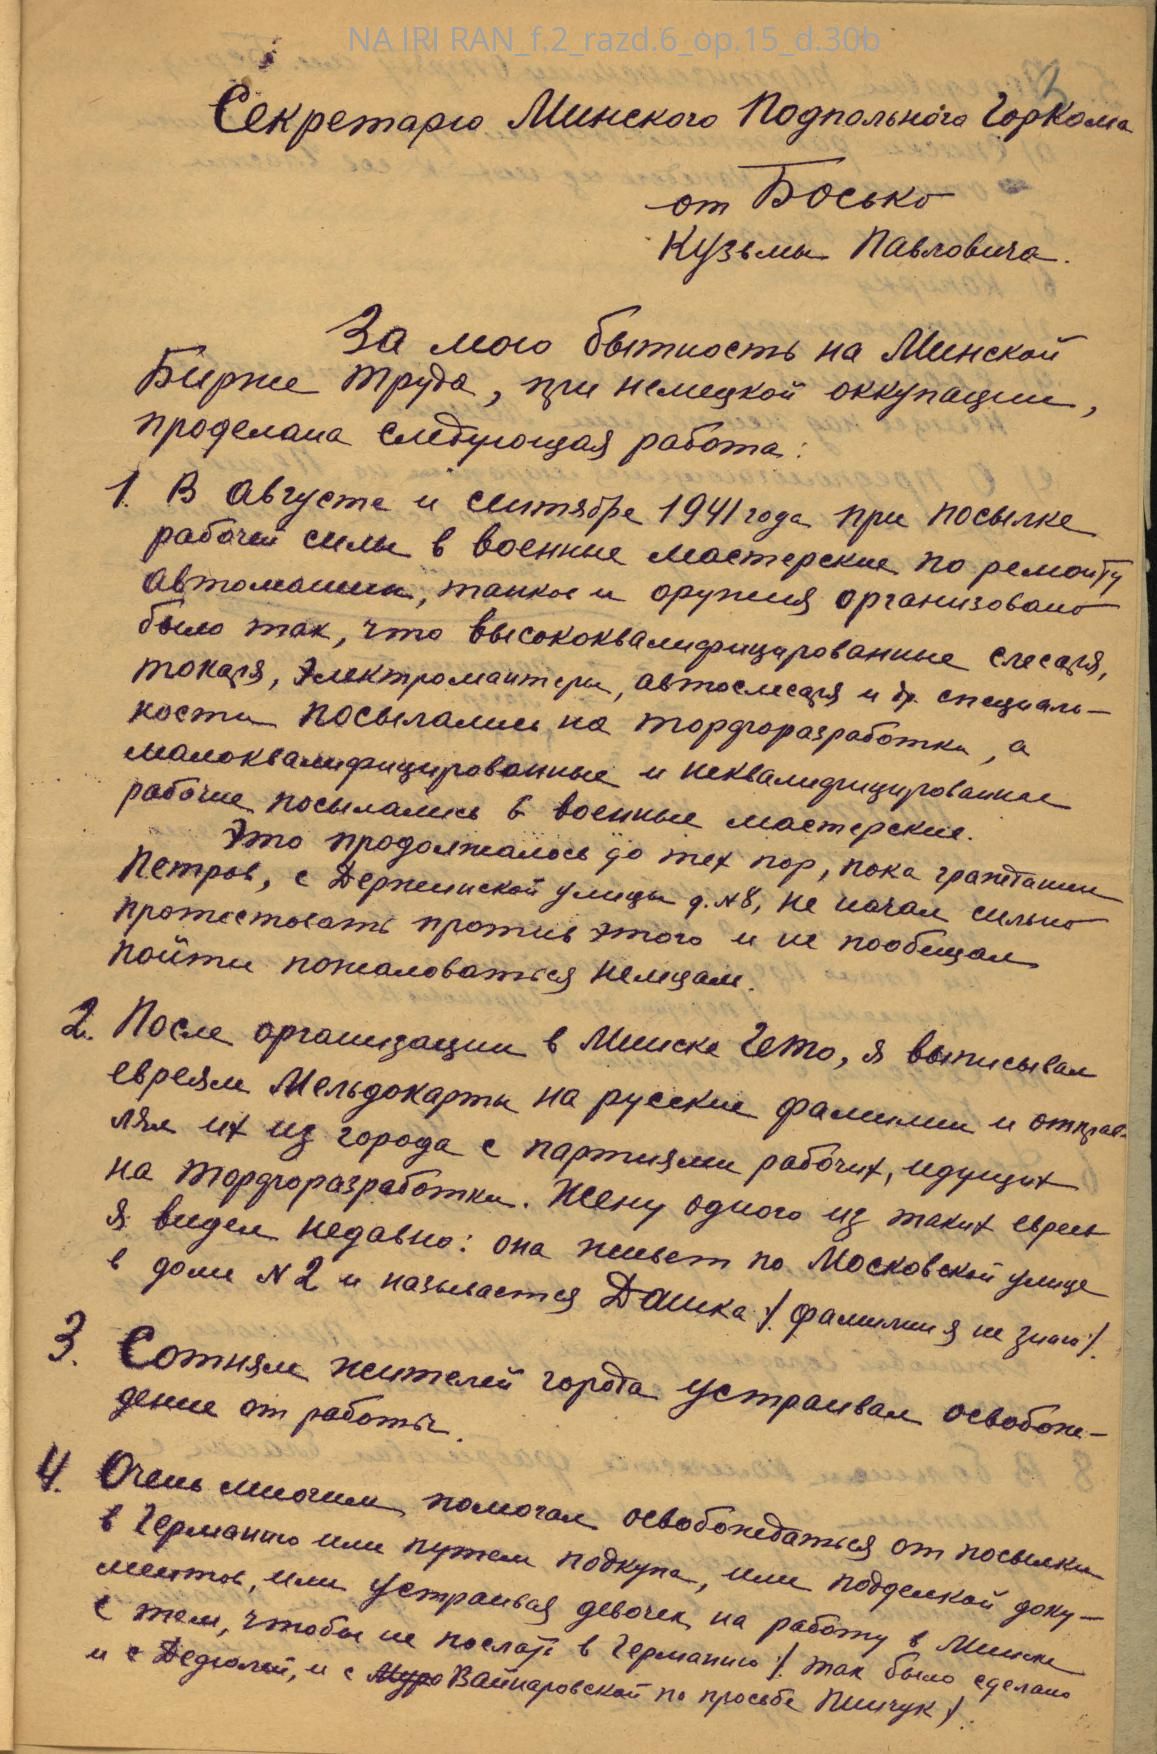 NA IRI RAN_f.2_razd.6_op.15_d.30b
3
Секретарю Минского Подпольного Горкома
от Босько
Кузьмы Павловича.
За мою бытность на Минской
Бирже Труда, при немецкой оккупации,
проделана следующая работа:
1. В августе и сентябре 1941 года при посылке
рабочей силы в военные мастерские по ремонту
автомашин, танков и оружия организовано
было так, что высококвалифицированные слесаря,
токаря, электромонтеры, автослесаря и др. специаль-
ности посылались на торфоразработки, а
малоквалифицированные и неквалифицированные
рабочие посылались в военные мастерские.
Это продолжалось до тех пор, пока гражданин
Петров, с Держинской улицы д. №8, не начал сильно
протестовать против этого и не пообещал
пойти пожаловаться немцам.
2. После организации в Минске Гето, я выписывал
евреям Мельдокарты на русские фамилии и отправ-
лял их из города с партиями рабочих, идущих
на торфоразработки. Жену одного из таких евреев
я видел недавно: она живет по Московской улице
в доме №2 и называется Дашка /. фамилии я не знаю /.
3. Сотням жителей города устраивал освобож-
дение от работы.
4. Очень многим помогал освобождаться от посылки
в Германию или путем подкупа, или подделкой доку-
ментов, или устраивая девочек на работу в Минске
с тем, чтобы не послать в Германию /. так было сделано
и с Дедюлей, и с Вайнаровской по просьбе Пинчук /.